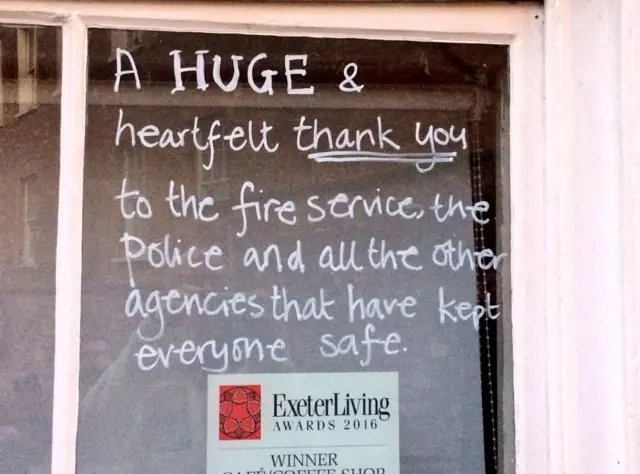 A HUGE &
heartfelt thank you
to the fire service, the
Police and all the other
agencies that have kept
everyone safe.
ExeterLiving
AWARDS 2016
WINNER
CAFÉ/COFFEE SHOP